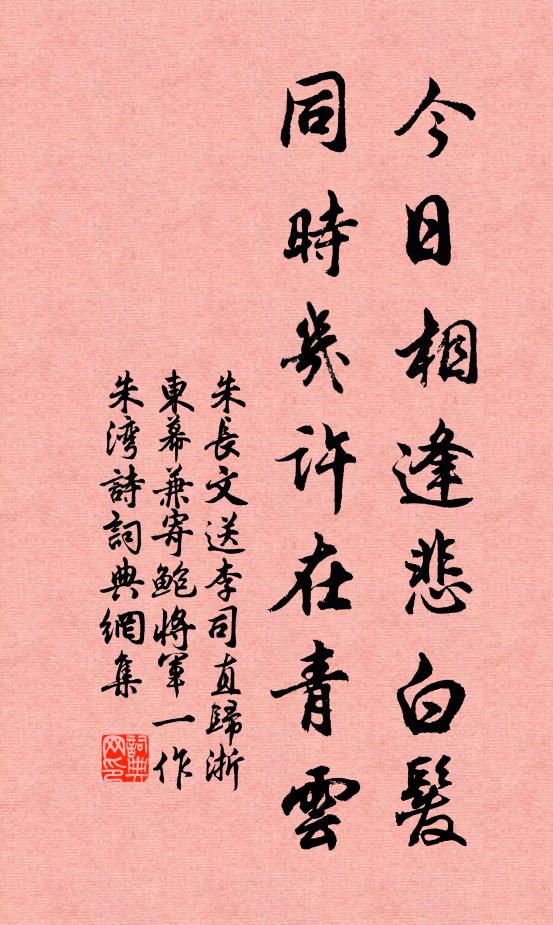 今日相逢悲白髮
同時幾許在青雲
朱長文送李司直歸浙
東幕兼寄鮑將軍一作
朱湾詩詞典網集
詞典网印